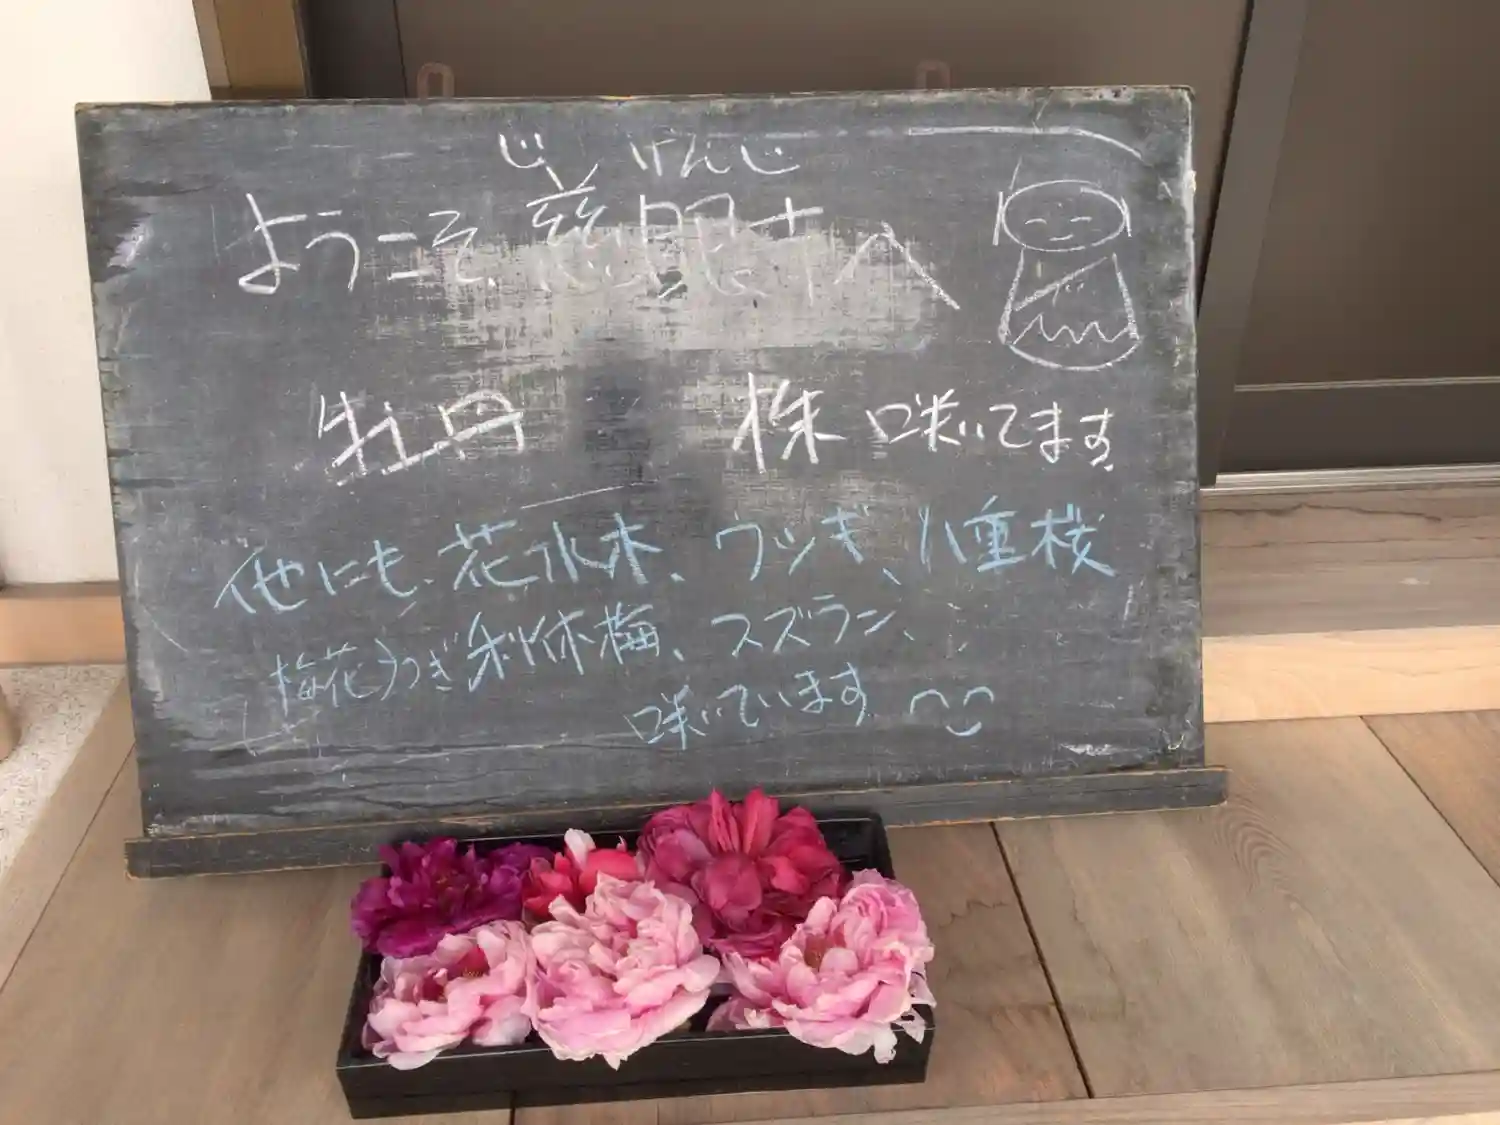 じ げんじ
ようこそ 慈眼寺へ
牡丹 株 咲いてます
他にも、花水木、ウツギ、八重桜
梅花うつぎ 利休梅、スズラン、
咲いています